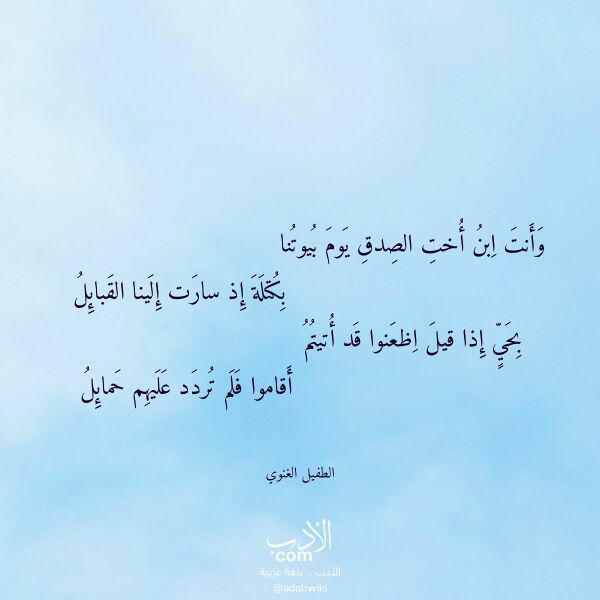 وَأَنتَ اِبنُ أُختِ الصِدقِ يَومَ بُيوتُنا
بِكُتلَةَ إِذ سارَت إِلَينا القَبائِلُ
بِحَيٍّ إِذا قيلَ اِظعَنوا قَد أُتيتُمُ
أَقاموا فَلَم تُردَد عَلَيهِم حَمائِلُ
الطفيل الغنوي
الأدب
.com
الأدب .. بلغة عربية
@adabwiki